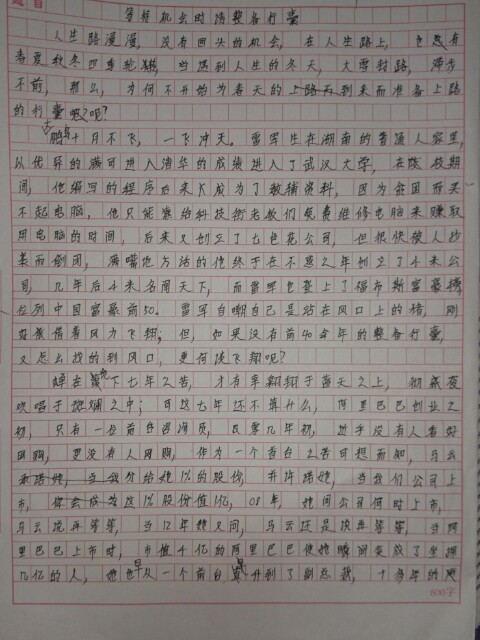 等候机会时请整备行囊
人生路漫漫，没有回头的机会，在人生路上，也总有
春夏秋冬四季轮换，当遇到人生的冬天，大雪封路，滞步
不前，那么，为何不开始为春天的到来而准备上路
的行囊呢？
鹏鸟十月不飞，一飞冲天。雷军生在湖南的普通人家里，
以优异的满可进入清华的成绩进入了武汉大学，在校期
间，他编写的程序后来成为了教辅资料，因为贫困而买
不起电脑，他只能靠给科技街老板们免费维修电脑来赚取
用电脑的时间，后来又创立了七色花公司，但很快被人抄
袭而倒闭，满嘴地方话的他终于在不惑之年创立了小米公
司，几年后小米名闻天下，而雷军也登上了福布斯富豪榜
位列中国富豪前50。雷军自嘲自己是站在风口上的猪，刚
好能借着风力飞翔；但，如果没有前40余年的整备行囊，
又怎么找的到风口，更何谈飞翔呢？
蝉在地下七年之苦，才有幸翱翔于蓝天之上，彻底夜
欢唱于斑斓之中；可这七年还不算什么，阿里巴巴创业之
初，只有一位前台咨询员，良零几年初，近乎没有人看好
网购，更没有人网购，作为一个前台之苦可想而知，马云
给她1%的股份，并许诺她，当我们公司上
市，你会成这1%股份值1亿，08年，她问公司何时上市，
马云说再等等，当12年她又问，马云还是说再等等，当阿
里巴巴上市时，市值千亿的阿里巴巴使她瞬间变成了坐拥
几亿的人，她也早从一个前台升到了副总裁，十多年的
600字